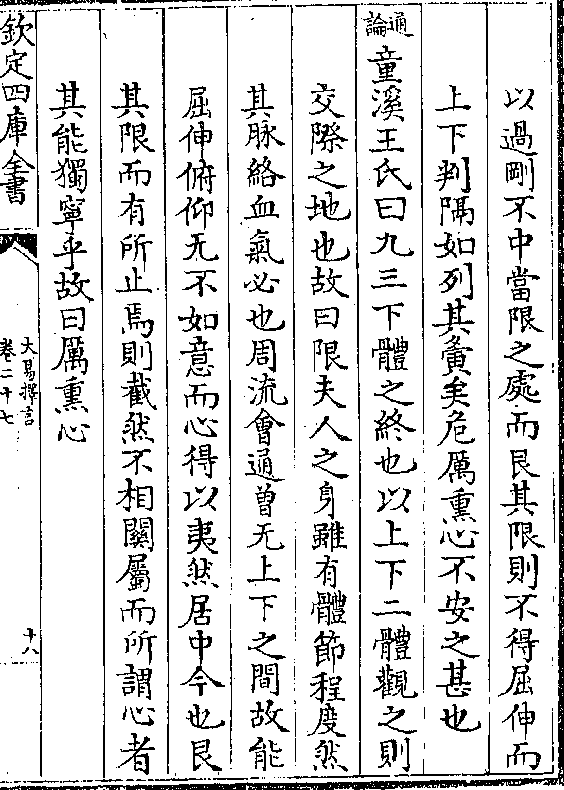 以過剛不中當限之處而艮其限則不得屈伸而
上下判隔如列其夤矣危厲熏心不安之甚也
通論
童溪王氏曰九三下體之終也以上下二體觀之則
交際之地也故曰限夫人之身雖有體節程度然
其脉絡血氣必也周流會通曾无上下之間故能
屈伸俯仰无不如意而心得以夷然居中今也艮
其限而有所止焉則截然不相關屬而所謂心者
其能獨寧乎故曰厲熏心
欽定四庫全書
大易擇言
卷二十七
十八